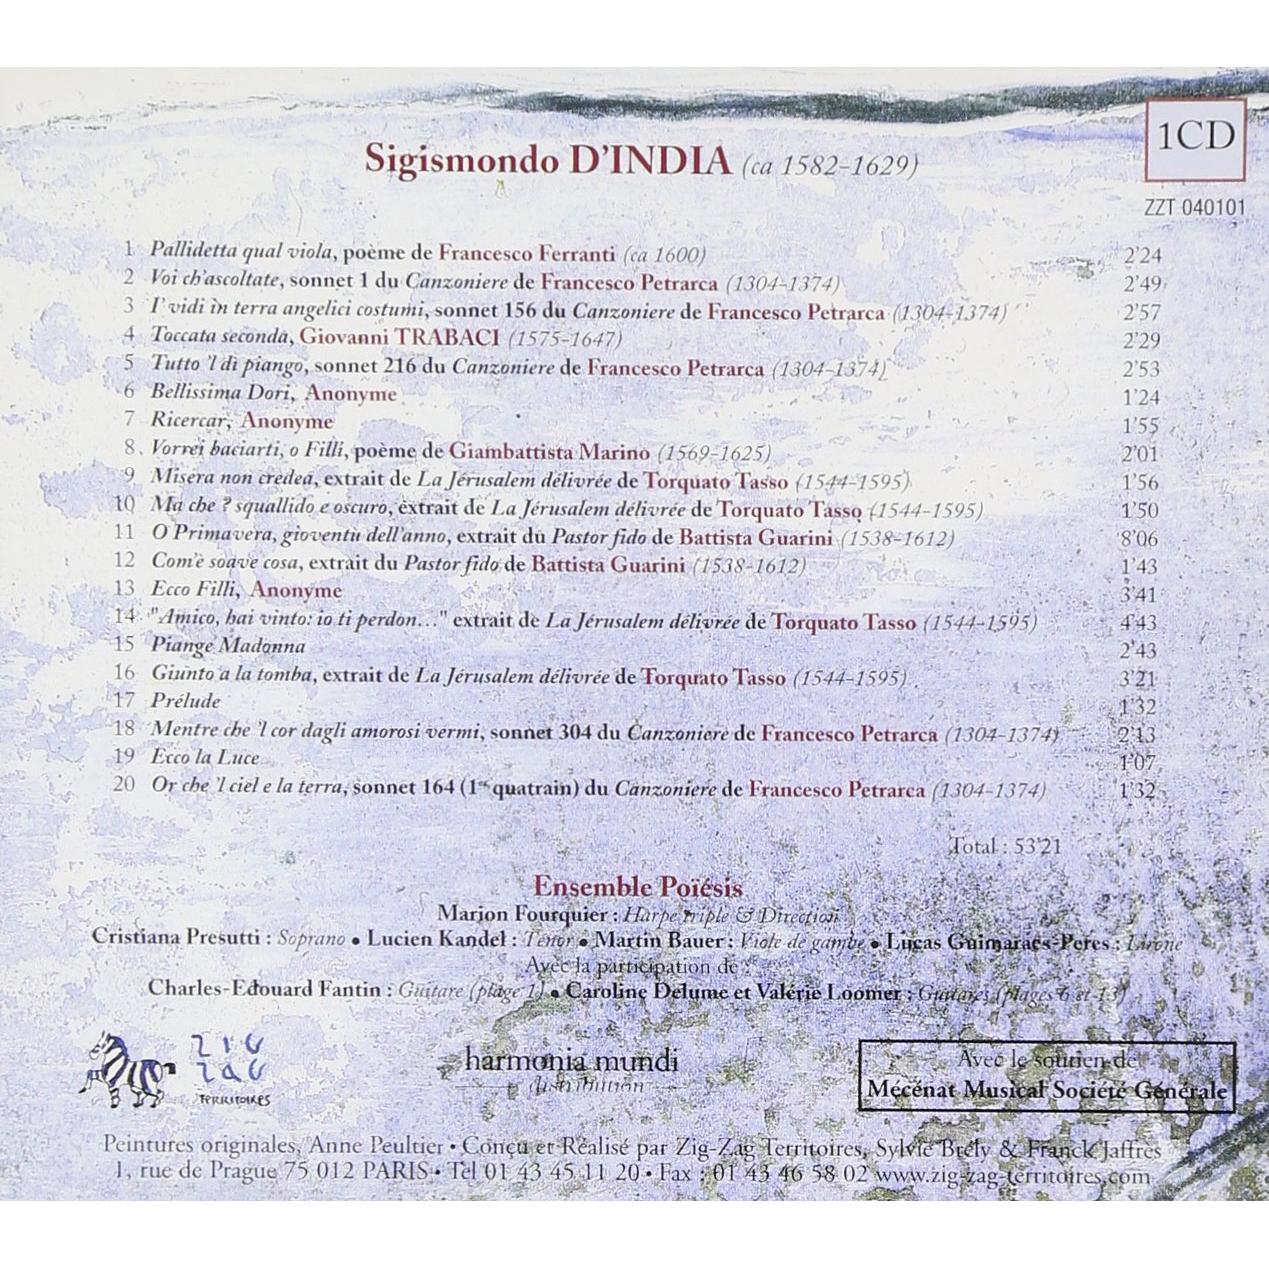 Sigismondo D'INDIA (ca 1582-1629)
1CD
ZZT 040101
1 Pallidetta qual viola, poème de Francesco Ferranti (ca 1600) 2'24
2 Voi ch'ascoltate, sonnet 1 du Canzoniere de Francesco Petrarca (1304-1374) 2'49
3 I' vidi in terra angelici costumi, sonnet 156 du Canzoniere de Francesco Petrarca (1304-1374) 2'57
4 Toccata seconda, Giovanni TRABACI (1575-1647) 2'29
5 Tutto 'l dì piango, sonnet 216 du Canzoniere de Francesco Petrarca (1304-1374) 2'53
6 Bellissima Dori, Anonyme 1'24
7 Ricercar, Anonyme 1'55
8 Vorrei baciarti, o Filli, poème de Giambattista Marino (1569-1625) 2'01
9 Misera non credea, extrait de La Jérusalem délivrée de Torquato Tasso (1544-1595) 1'56
10 Ma che ? squallido e oscuro, extrait de La Jérusalem délivrée de Torquato Tasso (1544-1595) 1'50
11 O Primavera, gioventù dell'anno, extrait du Pastor fido de Battista Guarini (1538-1612) 8'06
12 Com'è soave cosa, extrait du Pastor fido de Battista Guarini (1538-1612) 1'43
13 Ecco Filli, Anonyme 3'41
14 "Amico, hai vinto: io ti perdon..." extrait de La Jérusalem délivrée de Torquato Tasso (1544-1595) 4'43
15 Piange Madonna 2'43
16 Giunto a la tomba, extrait de La Jérusalem délivrée de Torquato Tasso (1544-1595) 3'21
17 Prélude 1'32
18 Mentre che 'l cor dagli amorosi vermi, sonnet 304 du Canzoniere de Francesco Petrarca (1304-1374) 2'13
19 Ecco la Luce 1'07
20 Or che 'l ciel e la terra, sonnet 164 (1er quatrain) du Canzoniere de Francesco Petrarca (1304-1374) 1'32
Total : 53'21
Ensemble Poïésis
Marion Fourquier : Harpe triple & Direction
Cristiana Presutti : Soprano • Lucien Kandel : Ténor • Martin Bauer : Viole de gambe • Lucas Guimaraes-Peres : Lirone
Avec la participation de :
Charles-Edouard Fantin : Guitare (plage 1) • Caroline Delume et Valérie Loomer : Guitares (plages 6 et 13)
ZIG
ZAG
TERRITOIRES
harmonia mundi
distribution
Avec le soutien de
Mécénat Musical Société Générale
Peintures originales, Anne Peultier • Conçu et Réalisé par Zig-Zag Territoires, Sylvie Brély & Franck Jaffrès
1, rue de Prague 75 012 PARIS • Tél 01 43 45 11 20 • Fax : 01 43 46 58 02 www.zig-zag-territoires.com